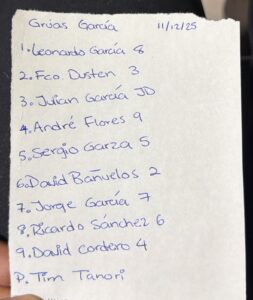 Grúas García 11/12/25
1. Leonardo García 8
2. Fco Dusten 3
3. Julian García JD
4. André Flores 9
5. Sergio Garza 5
6. David Bañuelos 2
7. Jorge García 7
8. Ricardo Sánchez 6
9. David Cordero 4
P. Tim Tanori